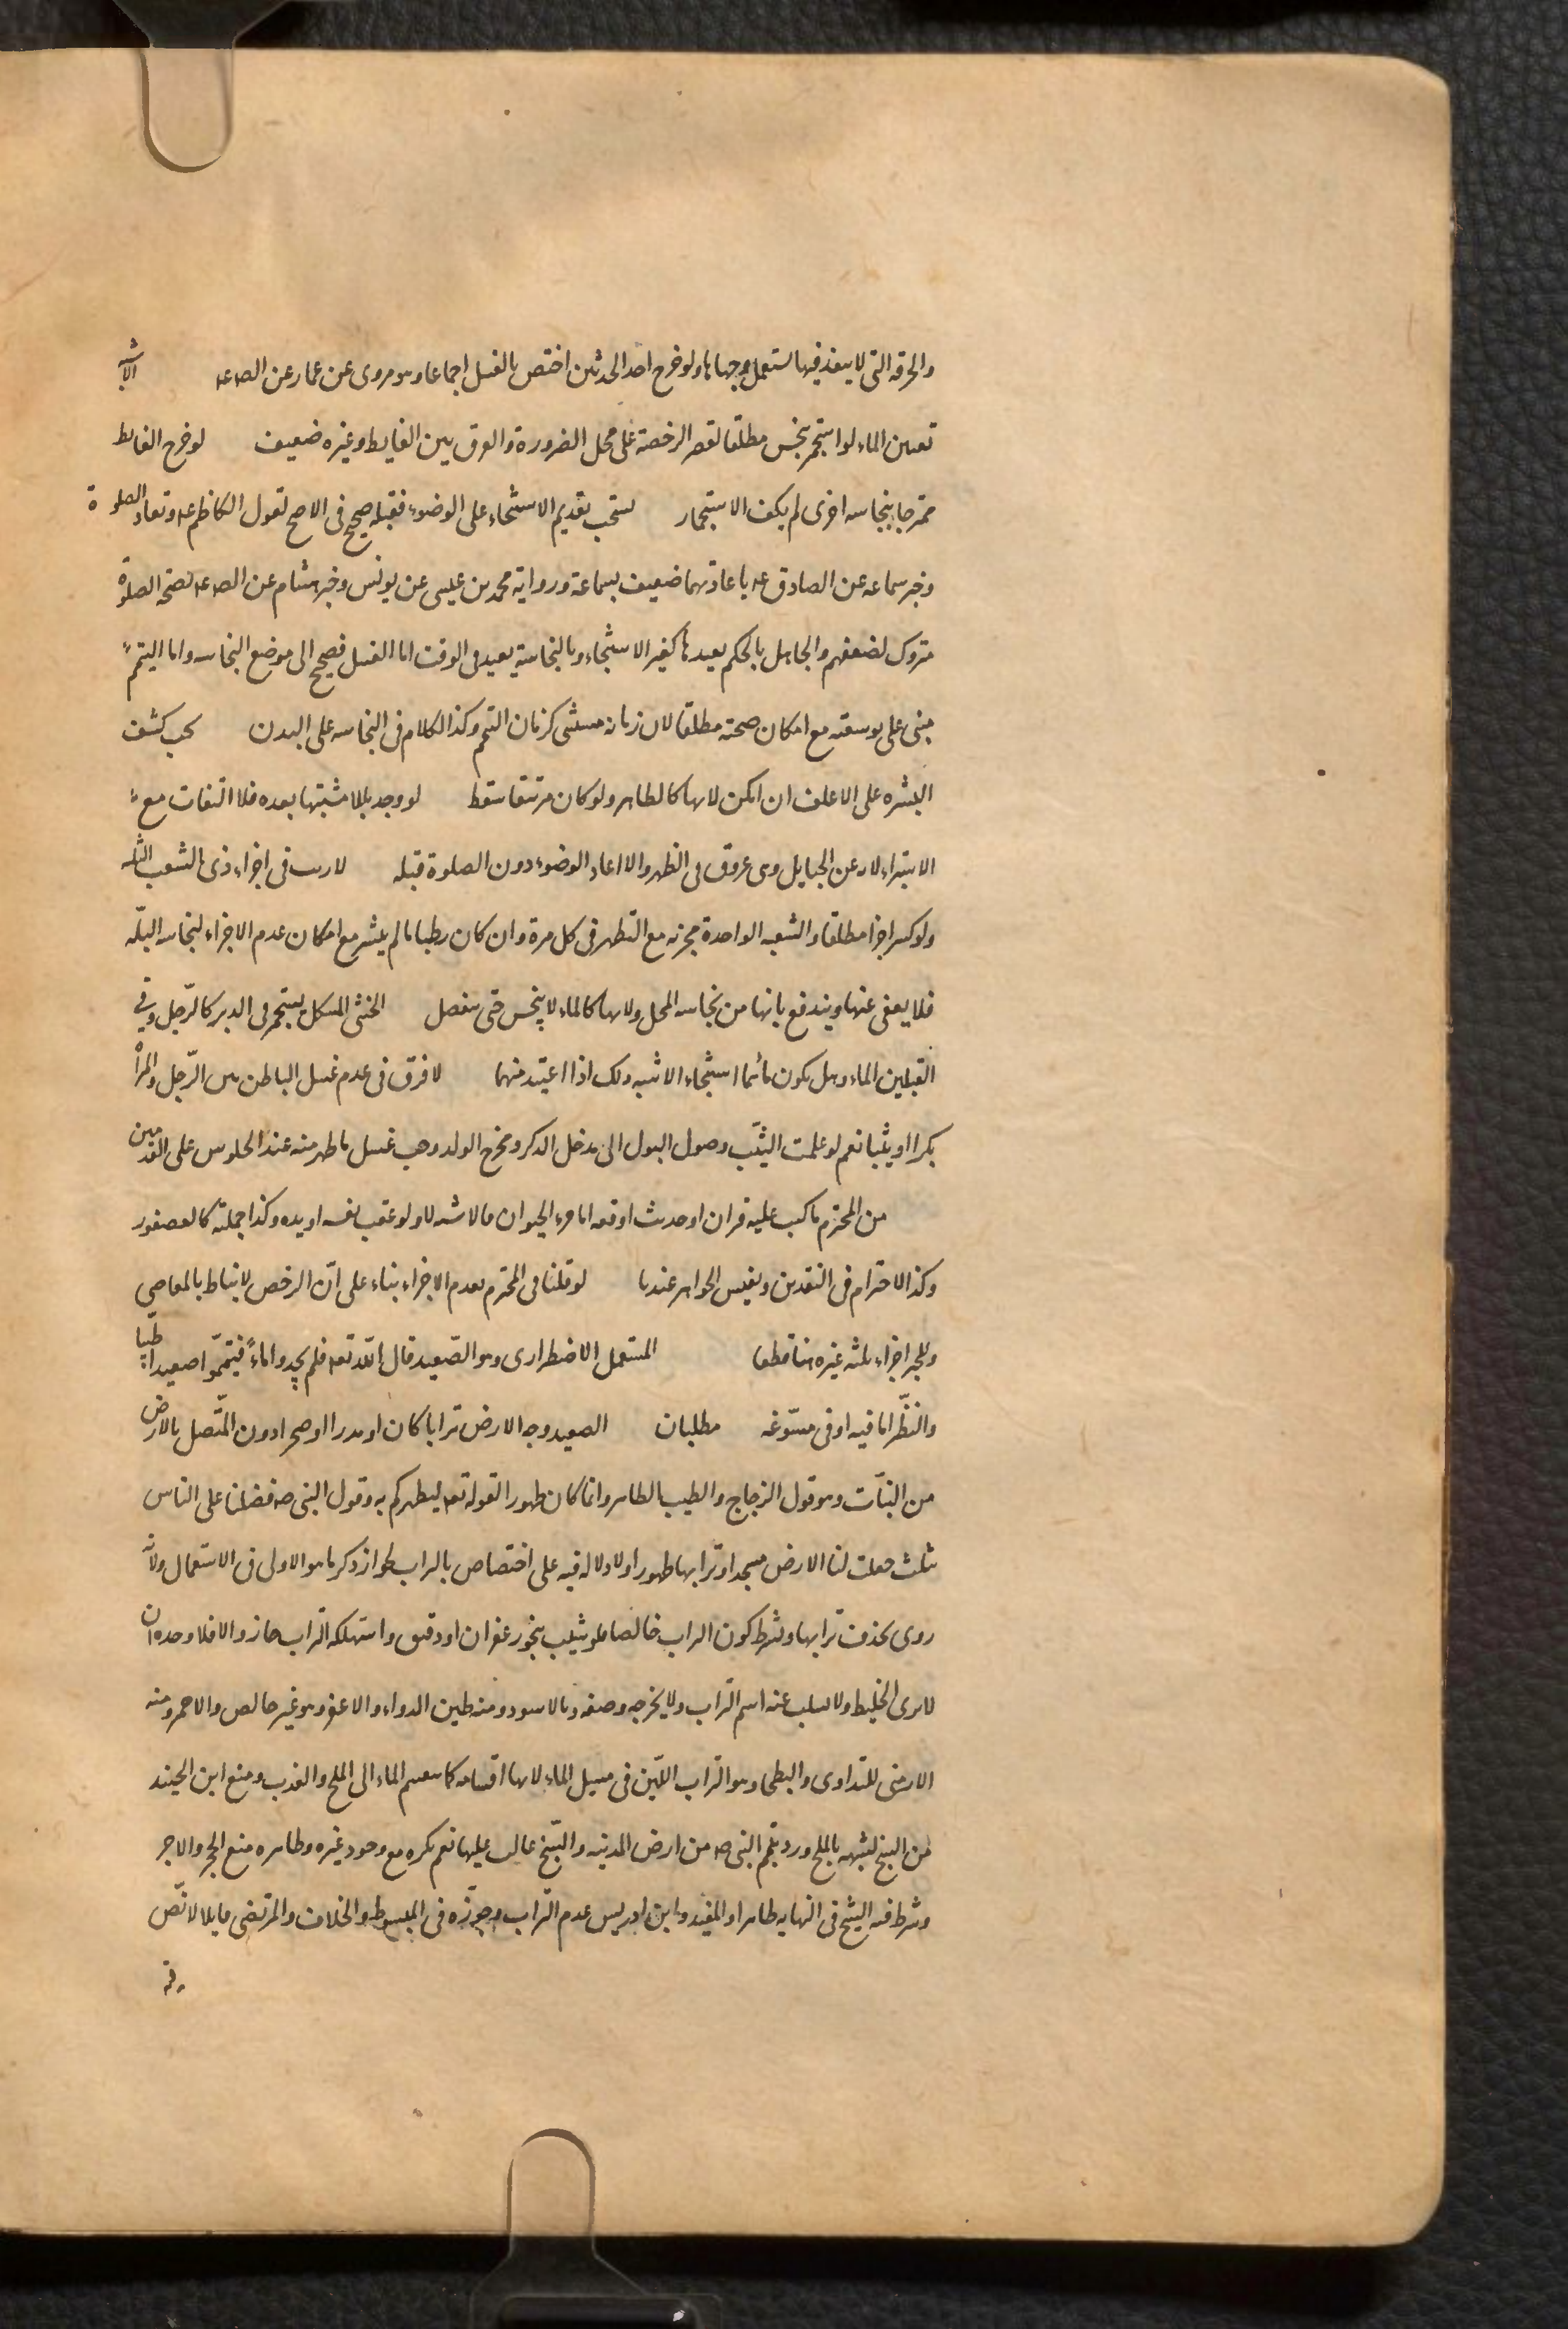 والخرقه التى لا ينفذ فيها يستعمل وجهاها ولو خرج احد الحدثين اختص بالغسل اجماعا وهو مروى عن عمار عن الص عه الاشبه
تعين الماء لو استجمر بنجس مطلقا لقصر الرخصة على محل الضرورة والفرق بين الغايط وغيره ضعيف لو خرج الغايط
ممتزجا بنجاسه اخرى لم يكف الاستجمار يستحب تقديم الاستنجاء على الوضوء فقبله صحيح فى الاصح لقول الكاظم عه وتعاد الصلوة
وخبر سماعه عن الصادق عه باعادتهما ضعيف بسماعة ورواية محمد بن عيسى عن يونس وخبر هشام عن الص عه بصحة الصلوة
متروك لضعفهم والجاهل بالحكم يعيدها كغير الاستنجاء وبالنجاسة يعيد فى الوقت اما الغسل فصحيح الى موضع النجاسه واما التيمم
مبنى على توسعته مع امكان صحته مطلقا لان زمانه مستثنى كزمان التيمم وكذا الكلام فى النجاسه على البدن يجب كشف
البشره على الاغلف ان امكن لانها كالظاهر ولو كان مرتتقا سقط لو وجد بللا مشتبها بعده فلا التفات مع
الاستبراء لانه عن الحبايل وهى عروق فى الظهر والا اعاد الوضوء دون الصلوة قبله لا ريب فى اجزاء ذى الشعب الثلثه
ولو كسر اجزا مطلقا والشعبه الواحدة مجزيه مع التطهر فى كل مرة وان كان رطبا ما لم ينشر مع امكان عدم الاجزاء لنجاسه البلّه
فلا يعفى عنها ويندفع بانها من نجاسه المحل ولانها كالماء لا ينجس حتى ينفصل الخنثى المشكل يستجمر فى الدبر كالرّجل وفى
القبلين الماء وهل يكون مائهما استنجاء الاشبه ذلك اذا اعتيد منهما لا فرق فى عدم غسل الباطن بين الرّجل والمرأ
بكرا او ثيبا نعم لو علمت الثيّب وصول البول الى مدخل الذكر ومخرج الولد وجب غسل ما ظهر منه عند الجلوس على القدمين
من المحترم ما كتب عليه قران او حديث او فقه اما جزء الحيوان فالاشبه لا ولو عقب نفسه او يده وكذا جملته كالعصفور
وكذا الاحترام فى النقدين ونفيس الجواهر عندنا لو قلنا فى المحترم بعدم الاجزاء بناء على انّ الرخص لا تناط بالمعاصى
وللجزاء ثلثه غيره هنا قطعا المستعمل الاضطرارى وهو الصّعيد قال الله تعه فلم يجدوا ماءً فتيمّموا صعيدا طيّبا
والنّظر اما فيه او فى مسوّغه مطلبان الصعيد وجه الارض ترابا كان او مدرا او صخرا دون المتّصل بالارض
من النبات وهو قول الزجاج والطيب الطاهر وانما كان طهورا لقوله تعه ليطهركم به وقول النبى صه فضلنا على الناس
بثلث جعلت لنا الارض مسجدا وترابها طهورا ولا دلاله فيه على اختصاص بالتراب لجواز ذكر ما هو الاولى فى الاستعمال ولانّه
روى بحذف ترابها ويشترط كون التراب خالصا فلو شيب بنحو زعفران او دقيق واستهلكه التراب جاز والا فلا وحده ان
لا يرى الخليط ولا يسلب عنه اسم التراب ولا يخرجه وصفه بالاسود ومنه طين الدواء والاعفر وهو غير خالص والاحمر ومنه
الارمنى للتداوى والبطحا وهو التراب الليّن فى مسيل الماء لانها اقسامه كما ينقسم الماء الى الملح والعذب ومنع ابن الجنيد
من السبخ لشبهه بالملح ورد بتيمم النبى صه من ارض المدينه والسّبخ غالب عليها نعم يكره مع وجود غيره وظاهره منع الحجر والاجر
وشرط فيه الشيخ فى النهايه ظاهرا والمفيد وابن ادريس عدم التّراب وجوّزه فى المبسوط والخلاف والمرتضى مايلا لا نصّ